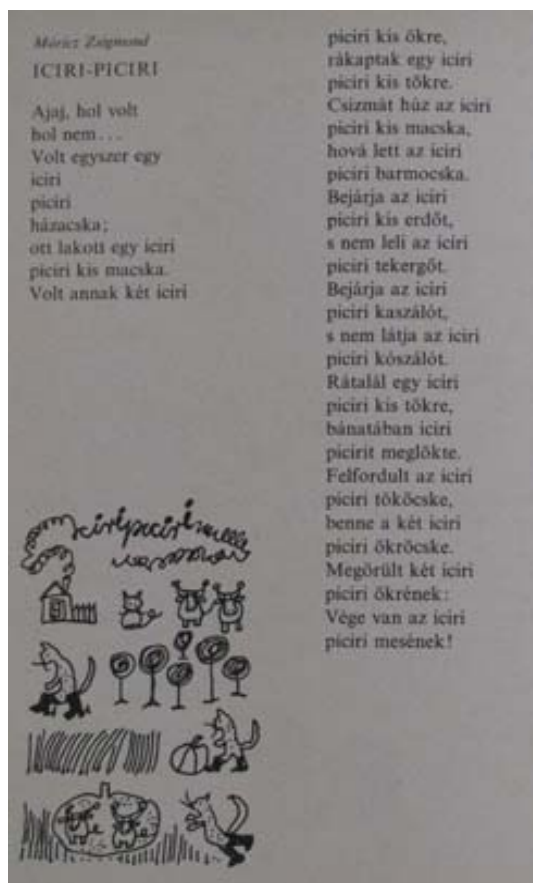 Móricz Zsigmond
ICIRI-PICIRI
Ajaj, hol volt
hol nem...
Volt egyszer egy
iciri
piciri
házacska;
ott lakott egy iciri
piciri kis macska.
Volt annak két iciri
piciri kis ökre,
rákaptak egy iciri
piciri kis tökre.
Csizmát húz az iciri
piciri kis macska,
hová lett az iciri
piciri barmocska.
Bejárja az iciri
piciri kis erdőt,
s nem leli az iciri
piciri tekergőt.
Bejárja az iciri
piciri kaszálót,
s nem látja az iciri
piciri kószálót.
Rátalál egy iciri
piciri kis tökre,
bánatában iciri
picirit meglökte.
Felfordult az iciri
piciri tököcske,
benne a két iciri
piciri ökröcske.
Megörült két iciri
piciri ökrének:
Vége van az iciri
piciri mesének!
iciripiciri